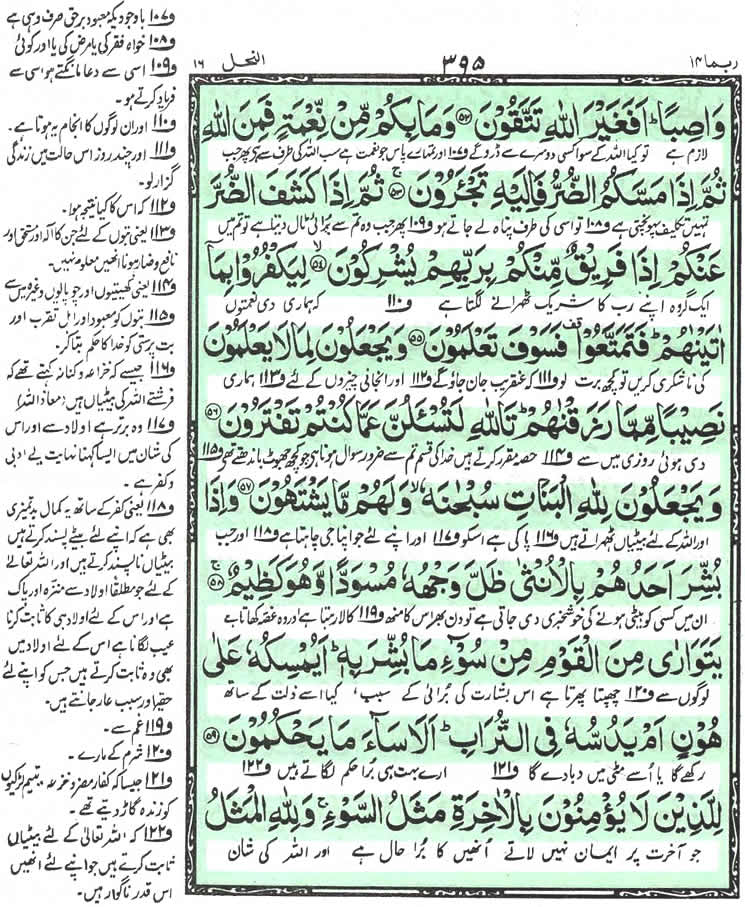 ربما ۱۴
۳۹۵
النحل ۱۶
وَاصِبًا ؕ اَفَغَيْرَ اللّٰهِ تَتَّقُوْنَ ﴿۵۲﴾ وَمَا بِكُمْ مِّنْ نِّعْمَةٍ فَمِنَ اللّٰهِ
لازم ہے تو کیا اللہ کے سوا کسی دوسرے سے ڈرو گے ف۱۰۷ اور تمہارے پاس جو نعمت ہے سب اللہ کی طرف سے ہے پھر جب
ثُمَّ اِذَا مَسَّكُمُ الضُّرُّ فَاِلَيْهِ تَجْـَٔرُوْنَ ﴿۵۳﴾ ثُمَّ اِذَا كَشَفَ الضُّرَّ
تمہیں تکلیف پہونچتی ہے ف۱۰۸ تو اسی کی طرف پناہ لے جاتے ہو ف۱۰۹ پھر جب وہ تم سے برائی ٹال دیتا ہے تو تم میں
عَنْكُمْ اِذَا فَرِيْقٌ مِّنْكُمْ بِرَبِّهِمْ يُشْرِكُوْنَ ﴿۵۴﴾ لِيَكْفُرُوْا بِمَاۤ
ایک گروہ اپنے رب کا شریک ٹھہرانے لگتا ہے ف۱۱۰ کہ ہماری دی نعمتوں
اٰتَيْنٰهُمْ ؕ فَتَمَتَّعُوْا ۫ فَسَوْفَ تَعْلَمُوْنَ ﴿۵۵﴾ وَيَجْعَلُوْنَ لِمَا لَا يَعْلَمُوْنَ
کی ناشکری کریں تو کچھ برت لو ف۱۱۱ کہ عنقریب جان جاؤ گے ف۱۱۲ اور انجانی چیزوں کے لئے ف۱۱۳ ہماری
نَصِيْبًا مِّمَّا رَزَقْنٰهُمْ ؕ تَاللّٰهِ لَتُسْـَٔلُنَّ عَمَّا كُنْتُمْ تَفْتَرُوْنَ ﴿۵۶﴾
دی ہوئی روزی میں سے ف۱۱۴ حصہ مقرر کرتے ہیں خدا کی قسم تم سے ضرور سوال ہونا ہے جو کچھ جھوٹ باندھتے تھے ف۱۱۵
وَيَجْعَلُوْنَ لِلّٰهِ الْبَنَاتِ سُبْحٰنَهٗ ۙ وَلَهُمْ مَّا يَشْتَهُوْنَ ﴿۵۷﴾ وَاِذَا
اور اللہ کے لئے بیٹیاں ٹھہراتے ہیں ف۱۱۶ پاکی ہے اسکو ف۱۱۷ اور اپنے لئے جو اپنا جی چاہتا ہے ف۱۱۸ اور جب
بُشِّرَ اَحَدُهُمْ بِالْاُنْثٰى ظَلَّ وَجْهُهٗ مُسْوَدًّا وَّهُوَ كَظِيْمٌ ﴿۵۸﴾
ان میں کسی کو بیٹی ہونے کی خوشخبری دی جاتی ہے تو دن بھر اس کا منھ ف۱۱۹ کالا رہتا ہے اور وہ غصہ کھاتا ہے
يَتَوَارٰى مِنَ الْقَوْمِ مِنْ سُوْٓءِ مَا بُشِّرَ بِهٖ ؕ اَيُمْسِكُهٗ عَلٰى
لوگوں سے ف۱۲۰ چھپتا پھرتا ہے اس بشارت کی برائی کے سبب، کیا اسے ذلت کے ساتھ
هُوْنٍ اَمْ يَدُسُّهٗ فِى التُّرَابِ ؕ اَلَا سَآءَ مَا يَحْكُمُوْنَ ﴿۵۹﴾
رکھے گا یا اُسے مٹی میں دبادے گا ف۱۲۱ ارے بہت ہی برا حکم لگاتے ہیں ف۱۲۲
لِلَّذِيْنَ لَا يُؤْمِنُوْنَ بِالْاٰخِرَةِ مَثَلُ السَّوْءِ ۚ وَلِلّٰهِ الْمَثَلُ
جو آخرت پر ایمان نہیں لاتے اُنھیں کا بُرا حال ہے اور اللہ کی شان
ف۱۰۷ باوجودیکہ معبود برحق صرف وہی ہے
ف۱۰۸ خواہ فقر کی یا مرض کی یا اور کوئی
ف۱۰۹ اسی سے دعا مانگتے ہو اسی سے
فریاد کرتے ہو۔
ف۱۱۰ اور ان لوگوں کا انجام یہ ہوتا ہے۔
ف۱۱۱ اور چند روز اس حالت میں زندگی
گزار لو۔
ف۱۱۲ کہ اس کا کیا نتیجہ ہوا۔
ف۱۱۳ یعنی بتوں کے لئے جن کا الٰہ اور مستحق اور
نافع وضار ہونا انھیں معلوم نہیں۔
ف۱۱۴ یعنی کھیتیوں اور چوپایوں وغیرہ میں سے
ف۱۱۵ بتوں کو معبود اور اہل تقرب اور
بت پرستی کو خدا کا حکم بتا کر۔
ف۱۱۶ جیسے کہ خزاعہ وکنانہ کہتے تھے کہ
فرشتے اللہ کی بیٹیاں ہیں (معاذ اللہ)
ف۱۱۷ وہ برتر ہے اولاد سے اور اس
کی شان میں ایسا کہنا نہایت بے ادبی
وکفر ہے۔
ف۱۱۸ یعنی کفر کے ساتھ یہ کمال بدتمیزی
بھی ہے کہ اپنے لئے بیٹے پسند کرتے ہیں
بیٹیاں ناپسند کرتے ہیں اور اللہ تعالیٰ
کے لئے جو مطلقا اولاد سے منزہ اور پاک
ہے اور اس کے لئے اولاد ہی کا ثابت کرنا
عیب لگانا ہے اس کے لئے اولاد میں
بھی وہ ثابت کرتے ہیں جس کو اپنے لئے
حقیر اور سبب عار جانتے ہیں۔
ف۱۱۹ غم سے۔
ف۱۲۰ شرم کے مارے۔
ف۱۲۱ جیسا کہ کفار مضر وخزاعہ وتمیم لڑکیوں
کو زندہ گاڑ دیتے تھے۔
ف۱۲۲ کہ اللہ تعالیٰ کے لئے بیٹیاں
ثابت کرتے ہیں جو اپنے لئے انھیں
اس قدر ناگوار ہیں۔